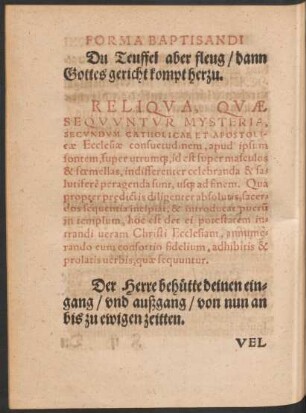 FORMA BAPTISANDI
Du Teuffel aber fleug / dann
Gottes gericht kompt herzu.
RELIQVA, QVÆ
SEQVVNTVR MYSTERIA,
SECVNDVM CATHOLICAE ET APOSTOLI-
cæ Ecclesiæ consuetudinem, apud ipsum
fontem, super utrumq;, id est super masculos
& fœmellas, indifferenter celebranda & sa-
lutiferè peragenda sunt, usq; ad finem. Qua
propter prædictis diligenter absolutis, sacer-
dos sequentia incipiat, & introducat puerũ
in templum, hoc est
ueram Christi Ecclesiam, annume-
rando eum consortio fidelium, adhibitis &
prolatis uerbis, quæ sequuntur.
Der Herre behütte deinen ein-
gang / vnd außgang / von nun an
bis zu ewigen zeitten.
VEL